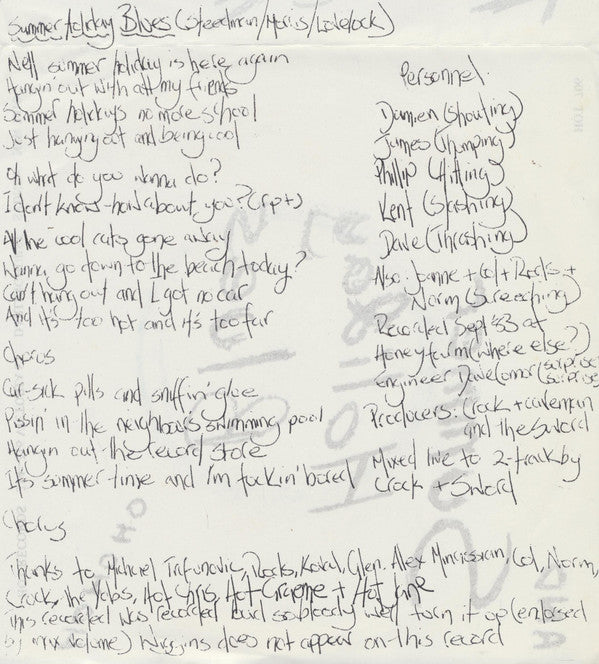 Summer Holiday Blues (Steedman/Morris/Lovelock)
Well summer holiday is here again
Hangin' out with all my friends
Sommer holidays no more school
Just hanging out and being cool
Oh what do you wanna do?
I don't know - how about you? (rpt)
All the cool cats gone away
Wanna go down to the beach today?
Can't hang out and I got no car
And it's too hot and it's too far
Chorus
Car-sick pills and sniffin' glue
Pissin' in the neighbours swimming pool
Hangin out the record store
It's summer-time and I'm fuckin' bored
Chorus
Personnel.
Damien (Shouting)
James (Thumping)
Phillip (Hitting)
Kent (Slashing)
Dave (Thrashing)
Also: Joanne + Col + Rocks +
Norm (Screeching)
Recorded Sept '83 at
Honeyfarm (where else?)
engineer Dave (surprise
surprise
Producers: Crock + caveman
and the Sword
Mixed live to 2-track by
Crock + Sword
Thanks to Michael Trifunovic, Rocks, Glen. Alex Col, Norm,
Crock, the Yobs, Hot Chris, Hot Graeme + Hot
This record was recorded loud so bloody well turn it up (enclosed
by max volume) huggins does not appear on this record
HOT 706